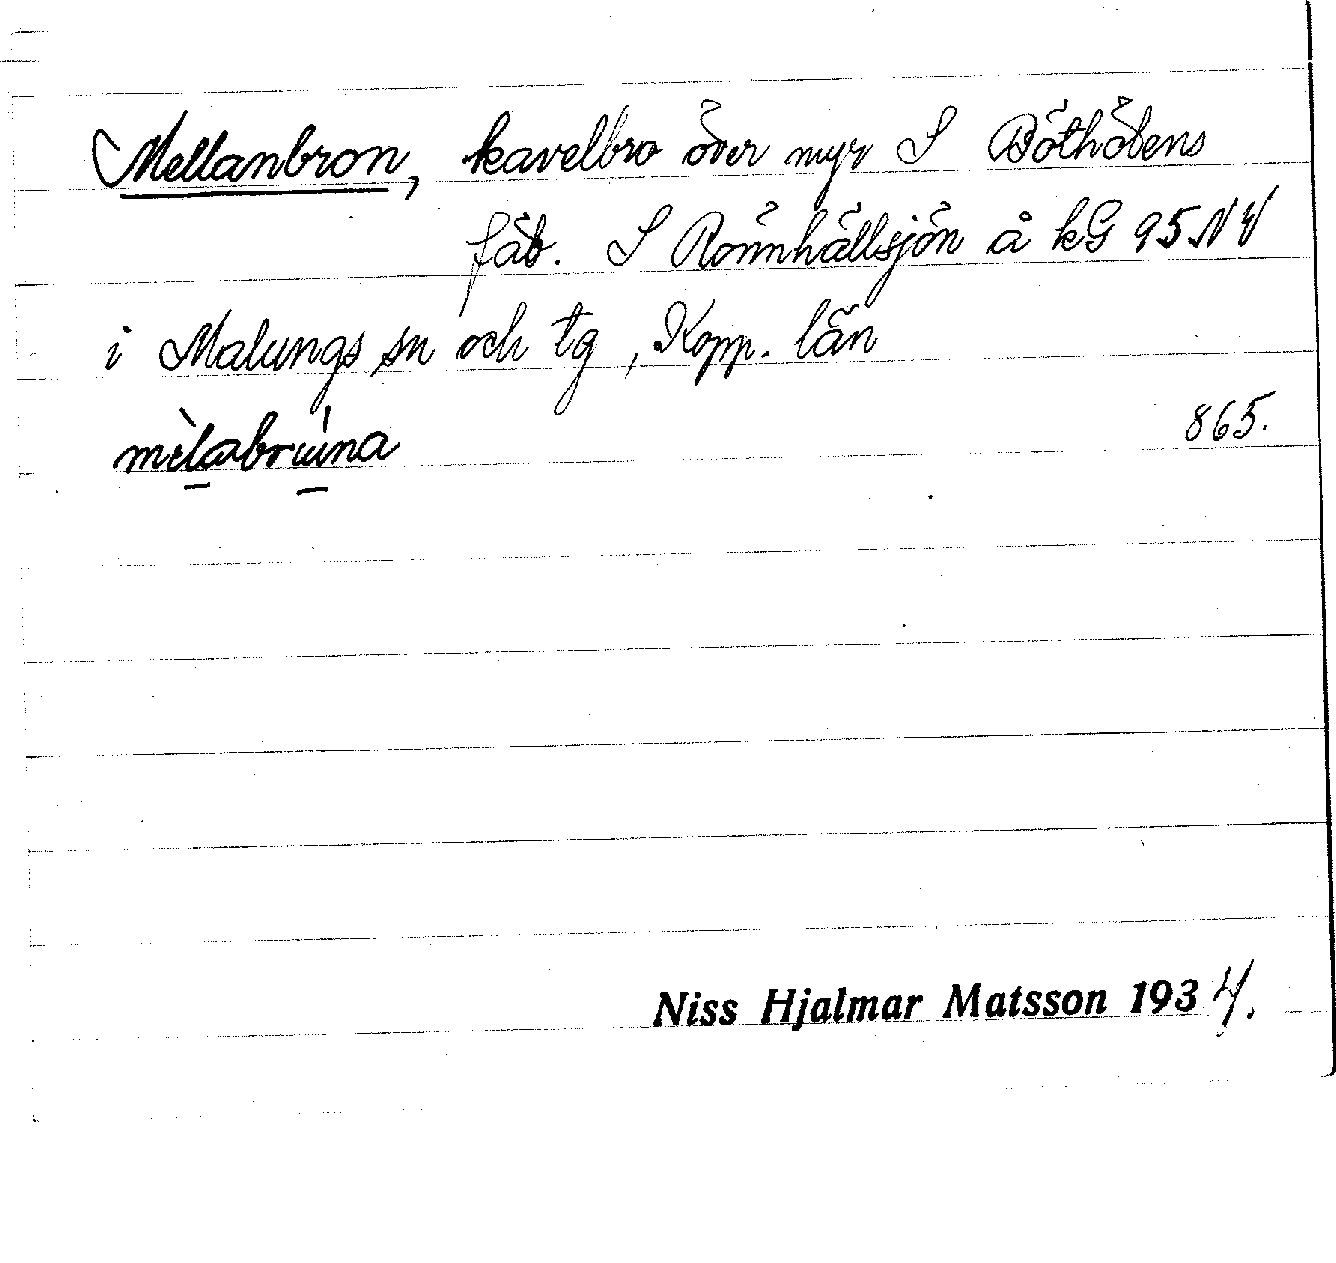 Mellanbron, kavelbro över myr S Böthölens
fäb. S Rönnhällsjön å kG 95 NV
i Malungs sn och tg, Kopp. län
865.
Niss Hjalmar Matsson 1934.